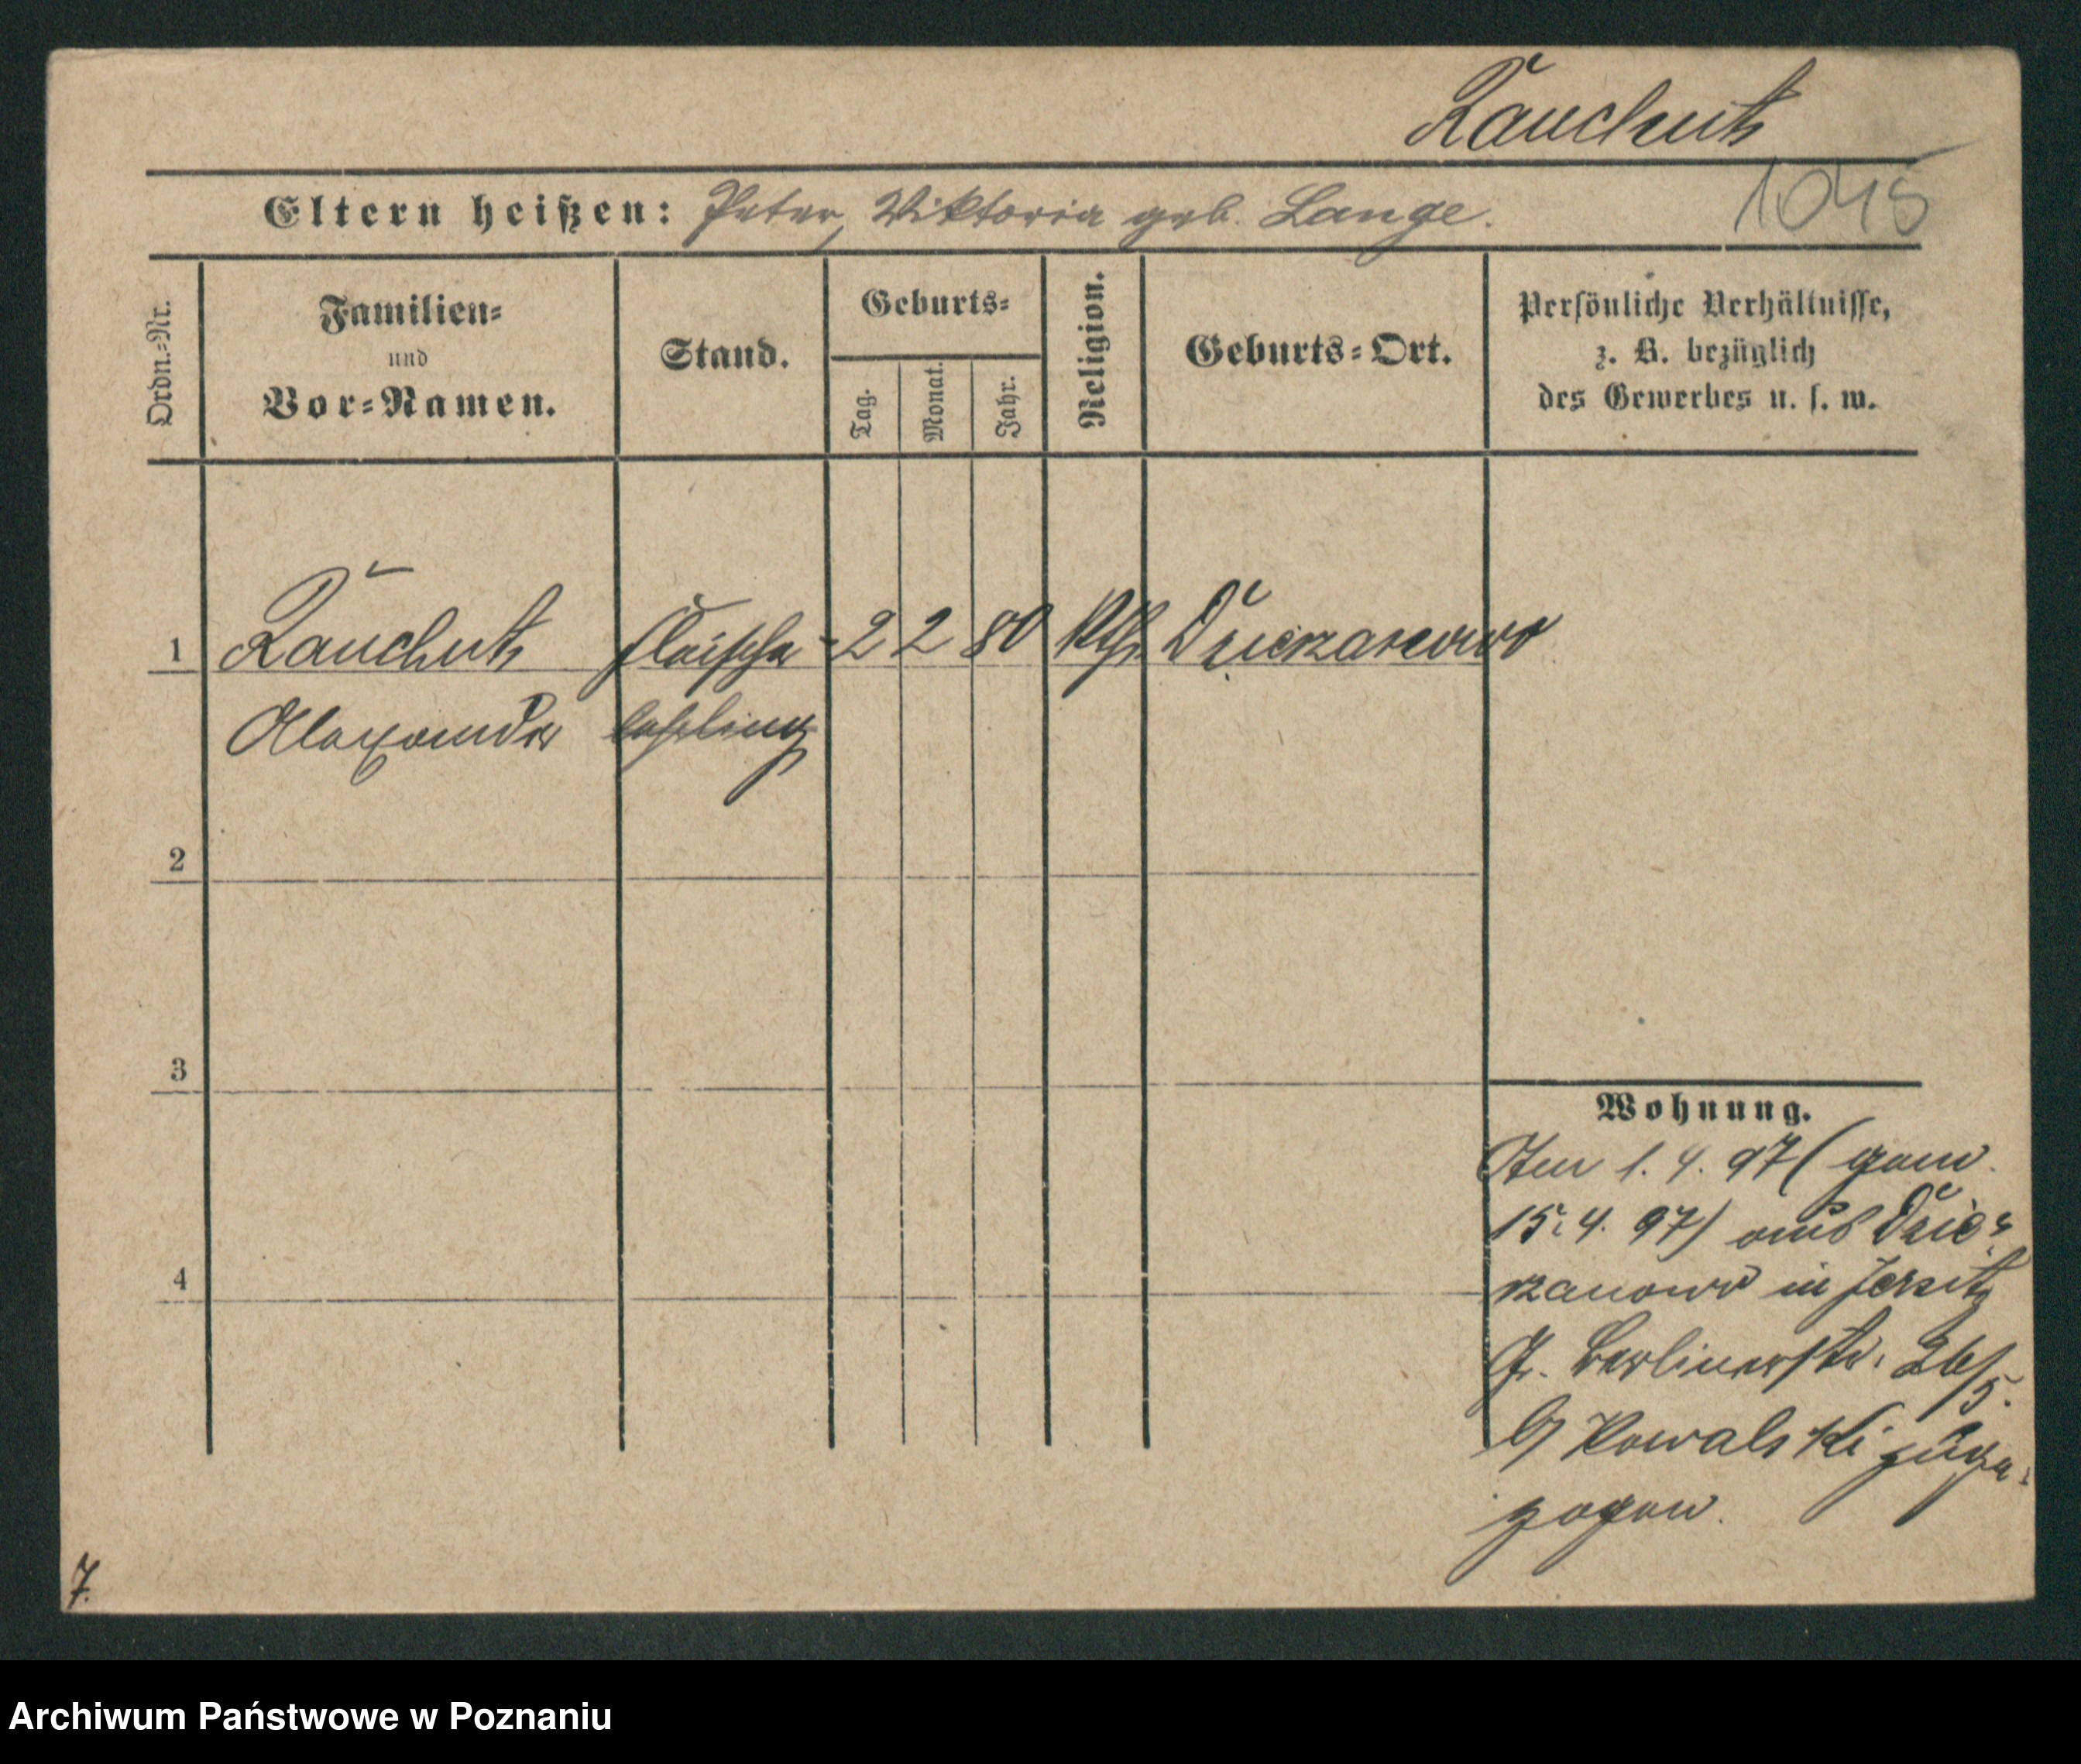 Rauchut
Eltern heißen: Peter, Viktoria geb. Lange.
1045
Ordn.-Nr.
Familien-
und
Vor-Namen.
Stand.
Geburts-
Tag.
Monat.
Jahr.
Religion.
Geburts-Ort.
Persönliche Verhältnisse,
z. B. bezüglich
des Gewerbes u. s. w.
1 Rauchut Fleischer- 2 2 80 Kth. Dzierzanowo
Alexander lehrling
2
3
4
Wohnung.
Am 1. 4. 97 (gem.
15. 4. 97) aus Dzier-
zanowo in Jersitz
Gr. Berlinerstr. 26/5.
b/ Kowalski zuge-
zogen.
7.
Archiwum Państwowe w Poznaniu